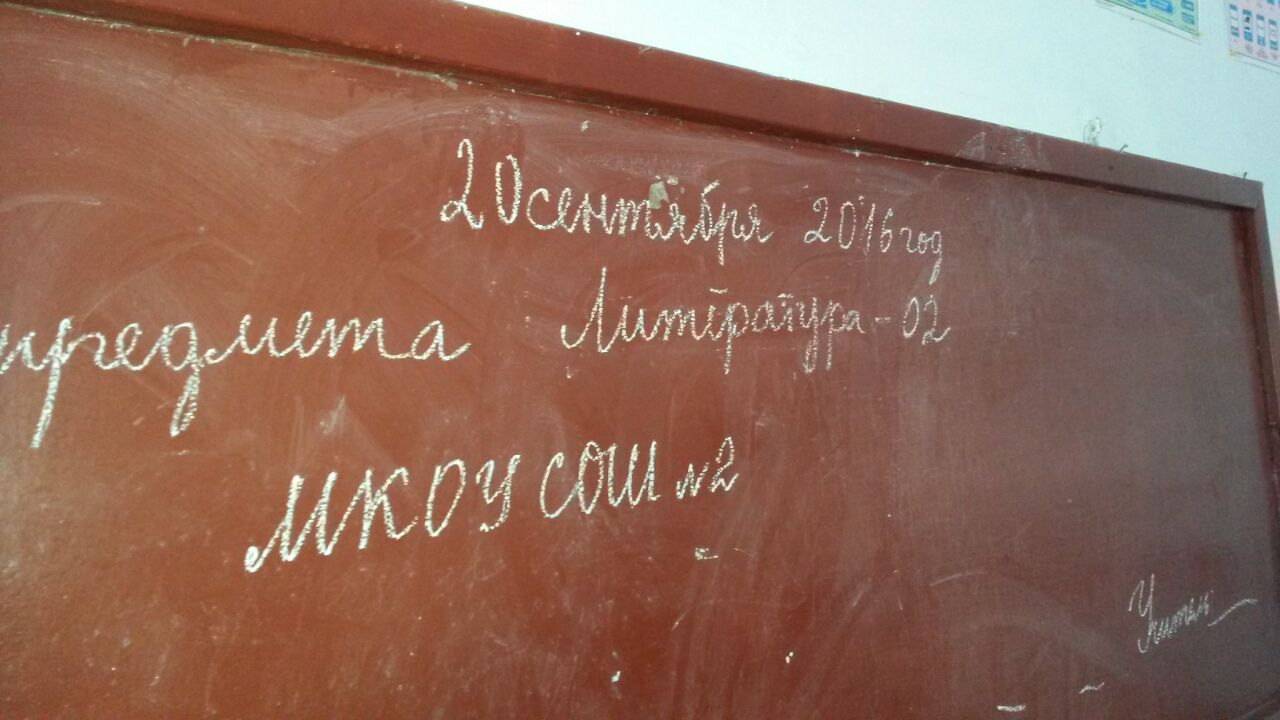 20 сентября 2016 год
предмета Литература - 02
МКОУ СОШ №2